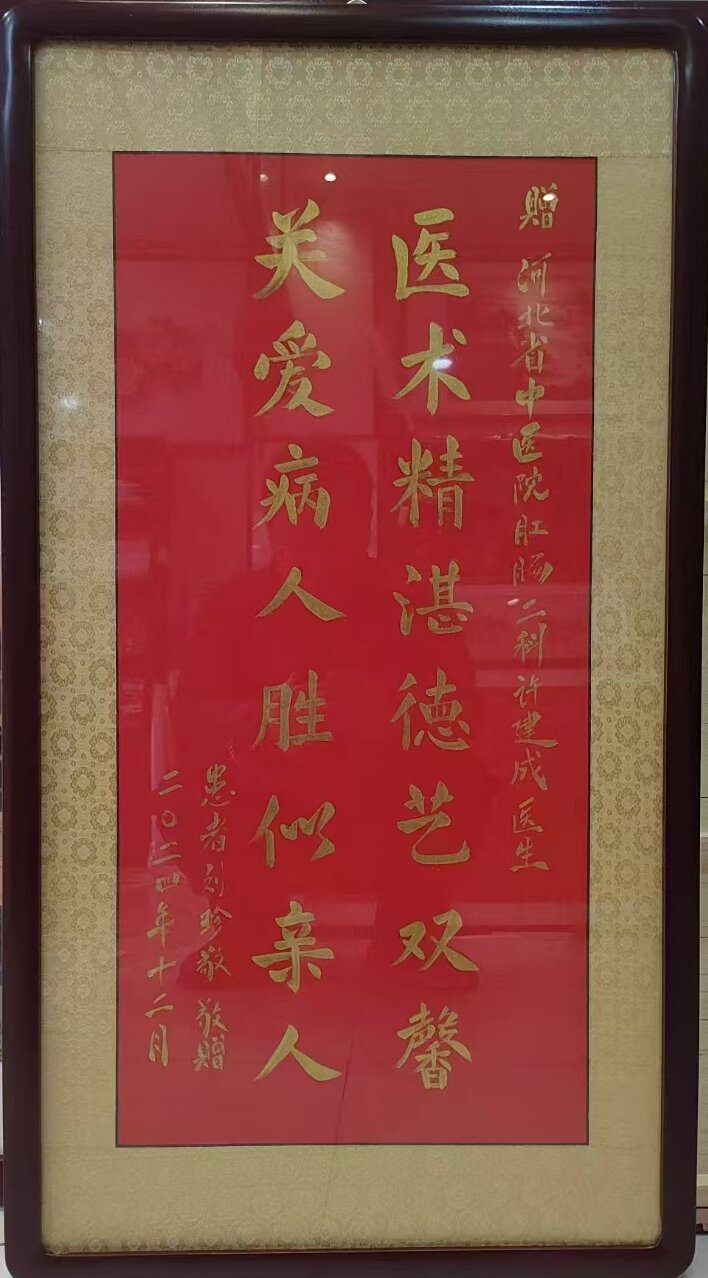 赠 河北省中医院肛肠二科许建成医生
医术精湛德艺双馨
关爱病人胜似亲人
患者刘珍敬 敬赠
二〇二四年十二月